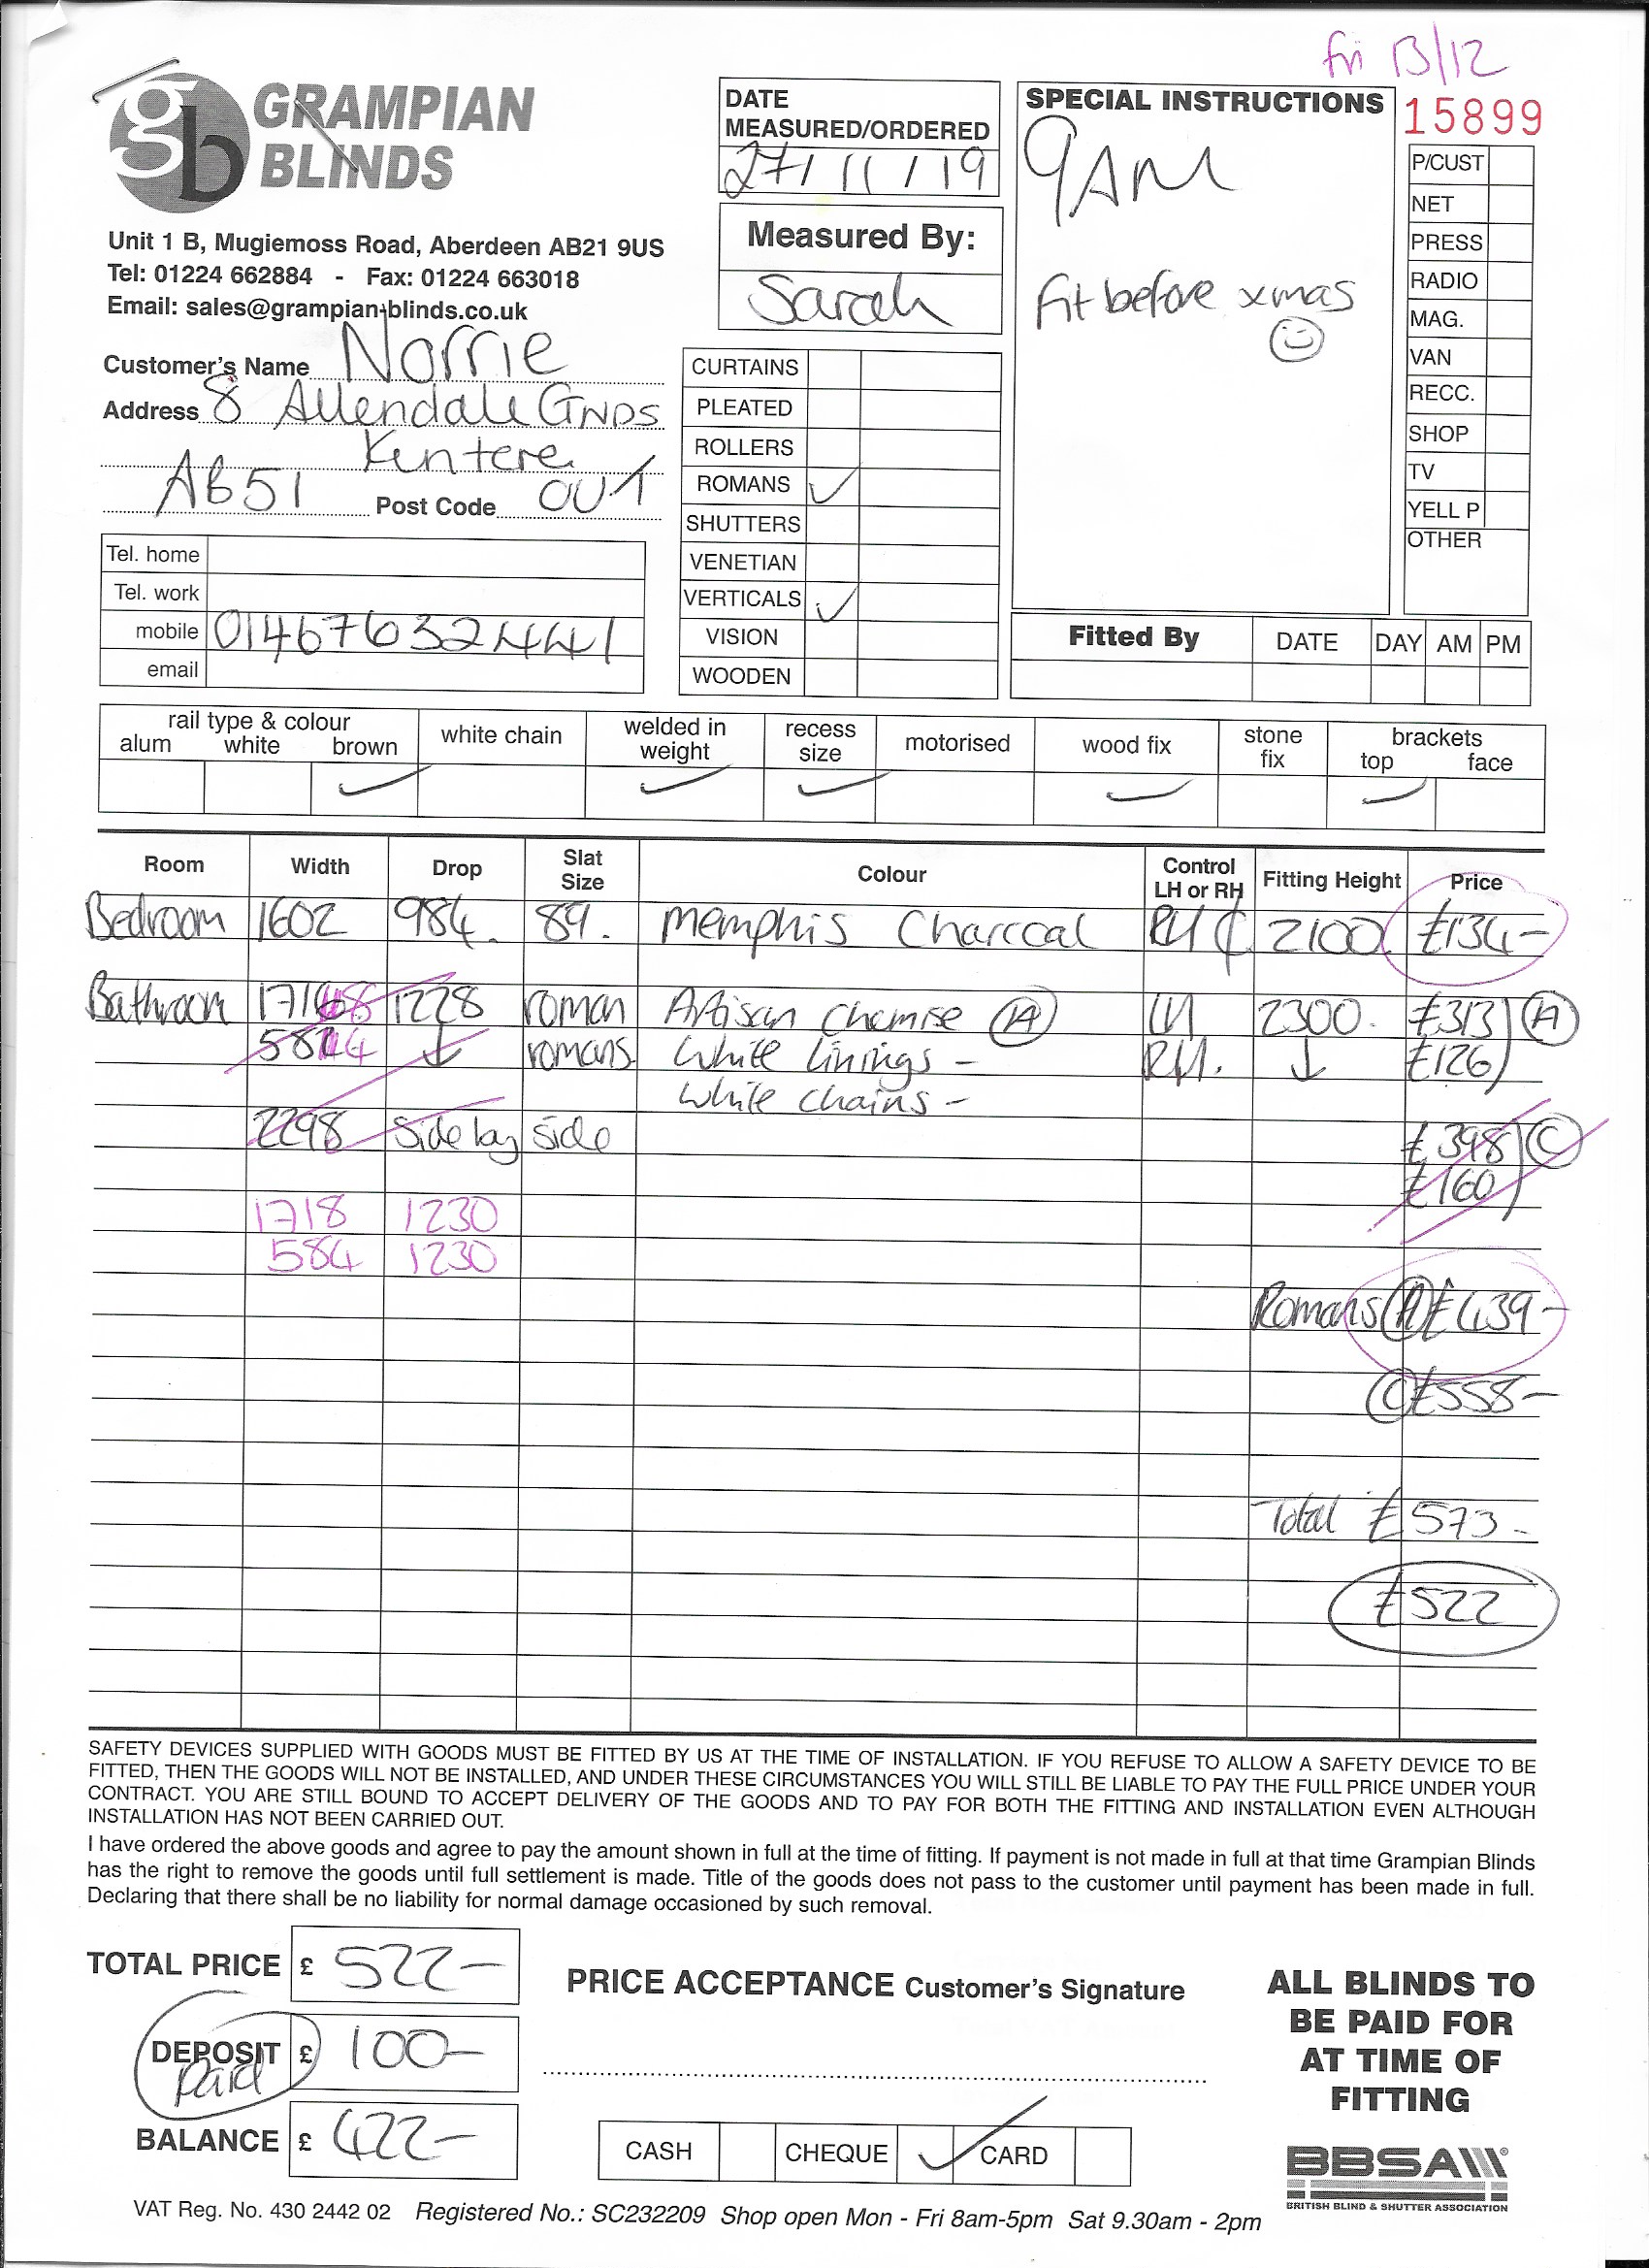 fri 13/12
gb GRAMPIAN BLINDS
Unit 1 B, Mugiemoss Road, Aberdeen AB21 9US
Tel: 01224 662884 - Fax: 01224 663018
Email: sales@grampian-blinds.co.uk
Customer's Name Norrie
Address 8 Allendale GNDS
Kintore
AB51 Post Code 0UT
Tel. home
Tel. work
mobile 01467632441
email
DATE MEASURED/ORDERED
27/11/19
Measured By:
Sarah
CURTAINS
PLEATED
ROLLERS
ROMANS ✓
SHUTTERS
VENETIAN
VERTICALS ✓
VISION
WOODEN
SPECIAL INSTRUCTIONS
9AM
Fit before xmas
15899
P/CUST
NET
PRESS
RADIO
MAG.
VAN
RECC.
SHOP
TV
YELL P
OTHER
Fitted By DATE DAY AM PM
rail type & colour
alum white brown white chain welded in weight recess size motorised wood fix stone fix brackets top face
✓ ✓ ✓ ✓ ✓
Room Width Drop Slat Size Colour Control LH or RH Fitting Height Price
Bedroom 1602 984. 89. Memphis Charcoal RH ₵ 2100 £134-
Bathroom 1228 roman Artisan Chemise (A) LH 2300. £313 (A)
romans. White linings - RH. £126
White chains -
2298 Side by side £398 (C)
£160
1718 1230
584 1230
Romans (A) £439-
(C) £558-
Total £573-
£522
SAFETY DEVICES SUPPLIED WITH GOODS MUST BE FITTED BY US AT THE TIME OF INSTALLATION. IF YOU REFUSE TO ALLOW A SAFETY DEVICE TO BE
FITTED, THEN THE GOODS WILL NOT BE INSTALLED, AND UNDER THESE CIRCUMSTANCES YOU WILL STILL BE LIABLE TO PAY THE FULL PRICE UNDER YOUR
CONTRACT. YOU ARE STILL BOUND TO ACCEPT DELIVERY OF THE GOODS AND TO PAY FOR BOTH THE FITTING AND INSTALLATION EVEN ALTHOUGH
INSTALLATION HAS NOT BEEN CARRIED OUT.
I have ordered the above goods and agree to pay the amount shown in full at the time of fitting. If payment is not made in full at that time Grampian Blinds
has the right to remove the goods until full settlement is made. Title of the goods does not pass to the customer until payment has been made in full.
Declaring that there shall be no liability for normal damage occasioned by such removal.
TOTAL PRICE £ 522-
DEPOSIT £ 100-
Paid
BALANCE £ 422-
PRICE ACCEPTANCE Customer's Signature
CASH CHEQUE ✓ CARD
ALL BLINDS TO
BE PAID FOR
AT TIME OF
FITTING
BBSA
BRITISH BLIND & SHUTTER ASSOCIATION
VAT Reg. No. 430 2442 02 Registered No.: SC232209 Shop open Mon - Fri 8am-5pm Sat 9.30am - 2pm